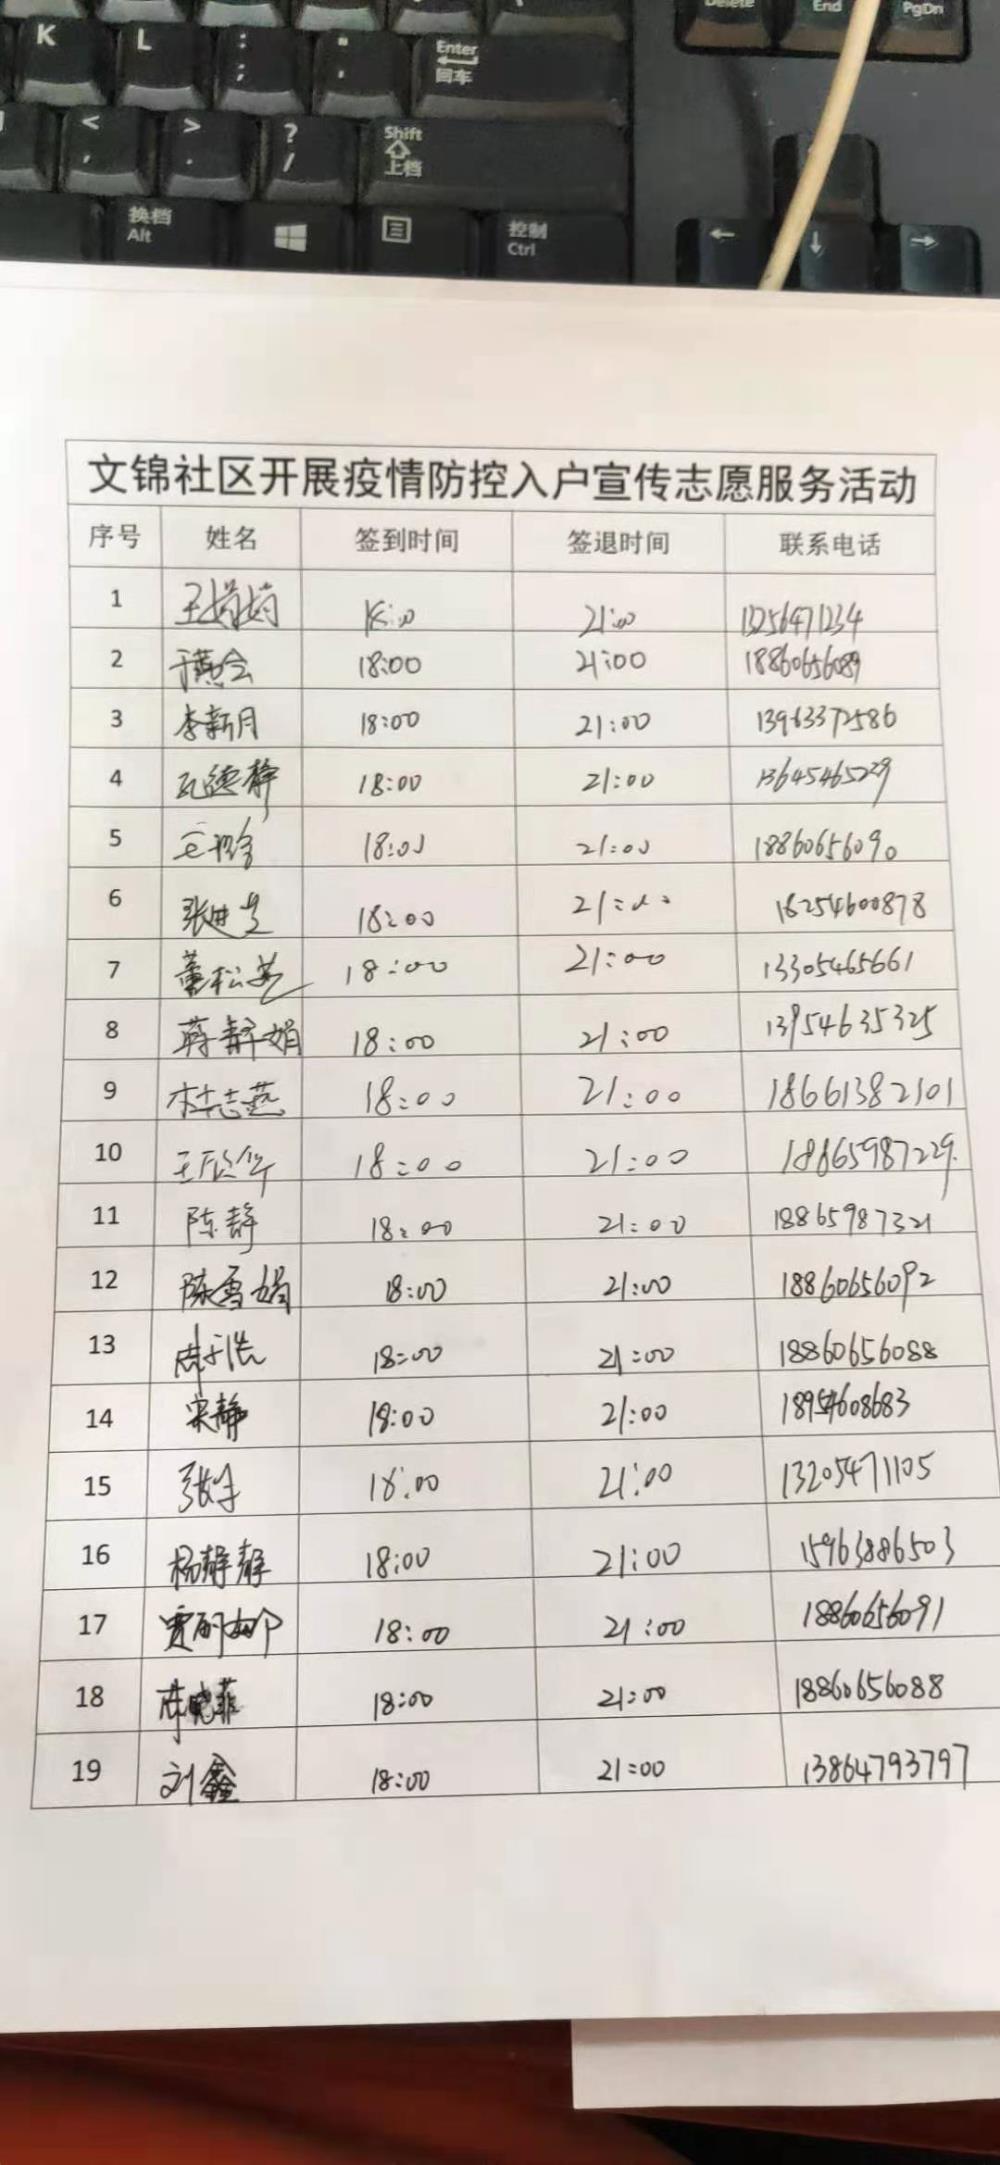 Delete End PgDn
K L : ; " ' Enter 回车
< , > . ? / Shift 上档
换档 Alt 控制 Ctrl ← ↓ →
文锦社区开展疫情防控入户宣传志愿服务活动
序号 姓名 签到时间 签退时间 联系电话
1 王娟娟 18:00 21:00 13256471234
2 于燕会 18:00 21:00 18860656089
3 李新月 18:00 21:00 13963372586
4 德静 18:00 21:00 13645465229
5 18:00 21:00 18860656090
6 张进 18:00 21:00 18254600878
7 董松 18:00 21:00 13305465661
8 蒋静娟 18:00 21:00 13954635325
9 杜志燕 18:00 21:00 18661382101
10 王欣华 18:00 21:00 18865987229
11 陈静 18:00 21:00 18865987321
12 陈雪娟 18:00 21:00 18860656092
13 18:00 21:00 18860656088
14 宋静 18:00 21:00 18954608683
15 18:00 21:00 13205471105
16 杨静静 18:00 21:00 15963886503
17 贾丽娜 18:00 21:00 18860656091
18 晓菲 18:00 21:00 18860656088
19 刘鑫 18:00 21:00 13864793797